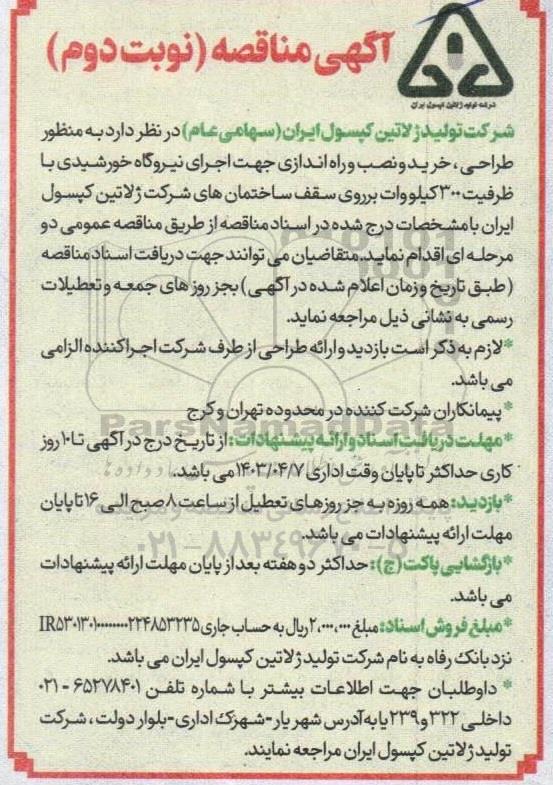 آگهی مناقصه (نوبت دوم)
شرکت تولید ژلاتین کپسول ایران
شرکت تولید ژلاتین کپسول ایران (سهامی عام) در نظر دارد به منظور
طراحی ، خرید و نصب و راه اندازی جهت اجرای نیروگاه خورشیدی با
ظرفیت ۳۰۰ کیلو وات بر روی سقف ساختمان های شرکت ژلاتین کپسول
ایران با مشخصات درج شده در اسناد مناقصه از طریق مناقصه عمومی دو
مرحله ای اقدام نماید. متقاضیان می توانند جهت دریافت اسناد مناقصه
(طبق تاریخ و زمان اعلام شده در آگهی) بجز روز های جمعه و تعطیلات
رسمی به نشانی ذیل مراجعه نماید.
*لازم به ذکر است بازدید و ارائه طراحی از طرف شرکت اجرا کننده الزامی
می باشد.
* پیمانکاران شرکت کننده در محدوده تهران و کرج
*مهلت دریافت اسناد و ارائه پیشنهادات: از تاریخ درج در آگهی تا ۱۰ روز
کاری حداکثر تا پایان وقت اداری ۱۴۰۳/۰۴/۷ می باشد.
*بازدید: همه روزه به جز روزهای تعطیل از ساعت ۸ صبح الی ۱۶ تا پایان
مهلت ارائه پیشنهادات می باشد.
*بازگشایی پاکت (ج): حداکثر دو هفته بعد از پایان مهلت ارائه پیشنهادات
می باشد.
*مبلغ فروش اسناد: مبلغ ۲,۰۰۰,۰۰۰ ریال به حساب جاری
نزد بانک رفاه به نام شرکت تولید ژلاتین کپسول ایران می باشد.
* داوطلبان جهت اطلاعات بیشتر با شماره تلفن ۶۵۲۷۸۴۰۱ - ۰۲۱
داخلی ۳۲۲ و ۲۳۹ یا به آدرس شهریار-شهرک اداری-بلوار دولت ، شرکت
تولید ژلاتین کپسول ایران مراجعه نمایند.
ParsNamadData
۰۲۱-۸۸۳۴۹۶۷۰-۵